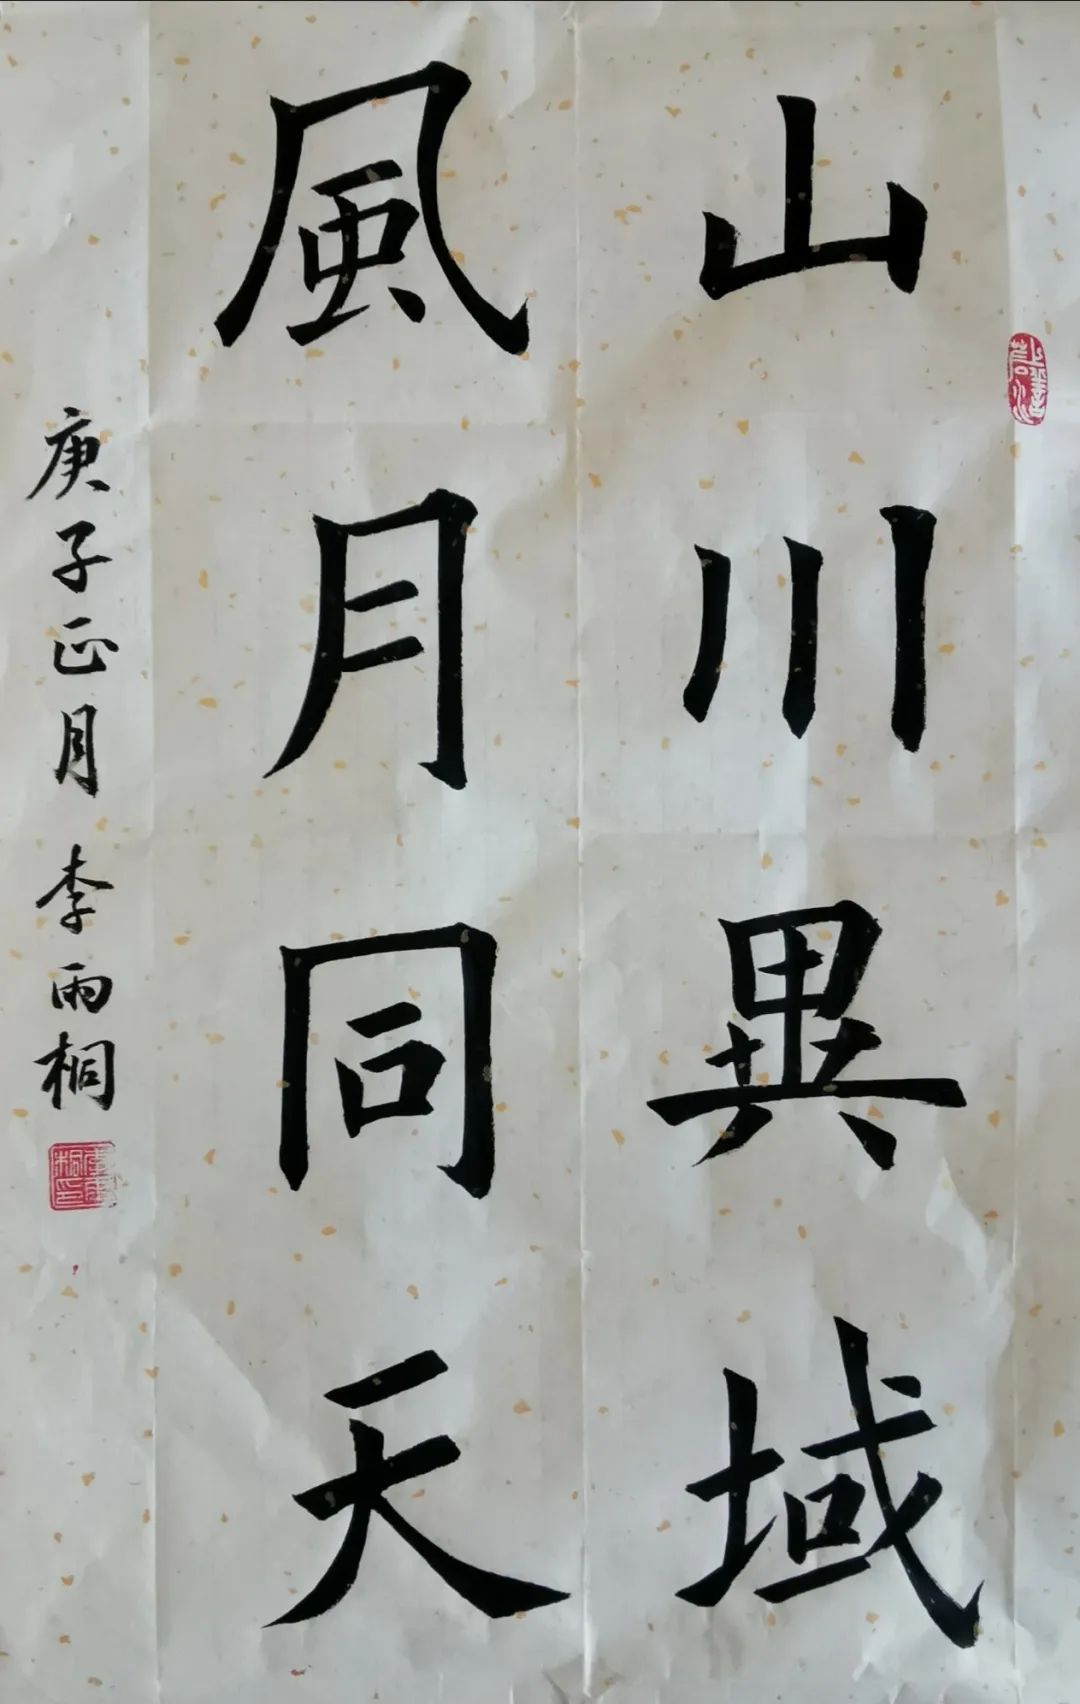 山川異域
風月同天
庚子正月 李雨桐